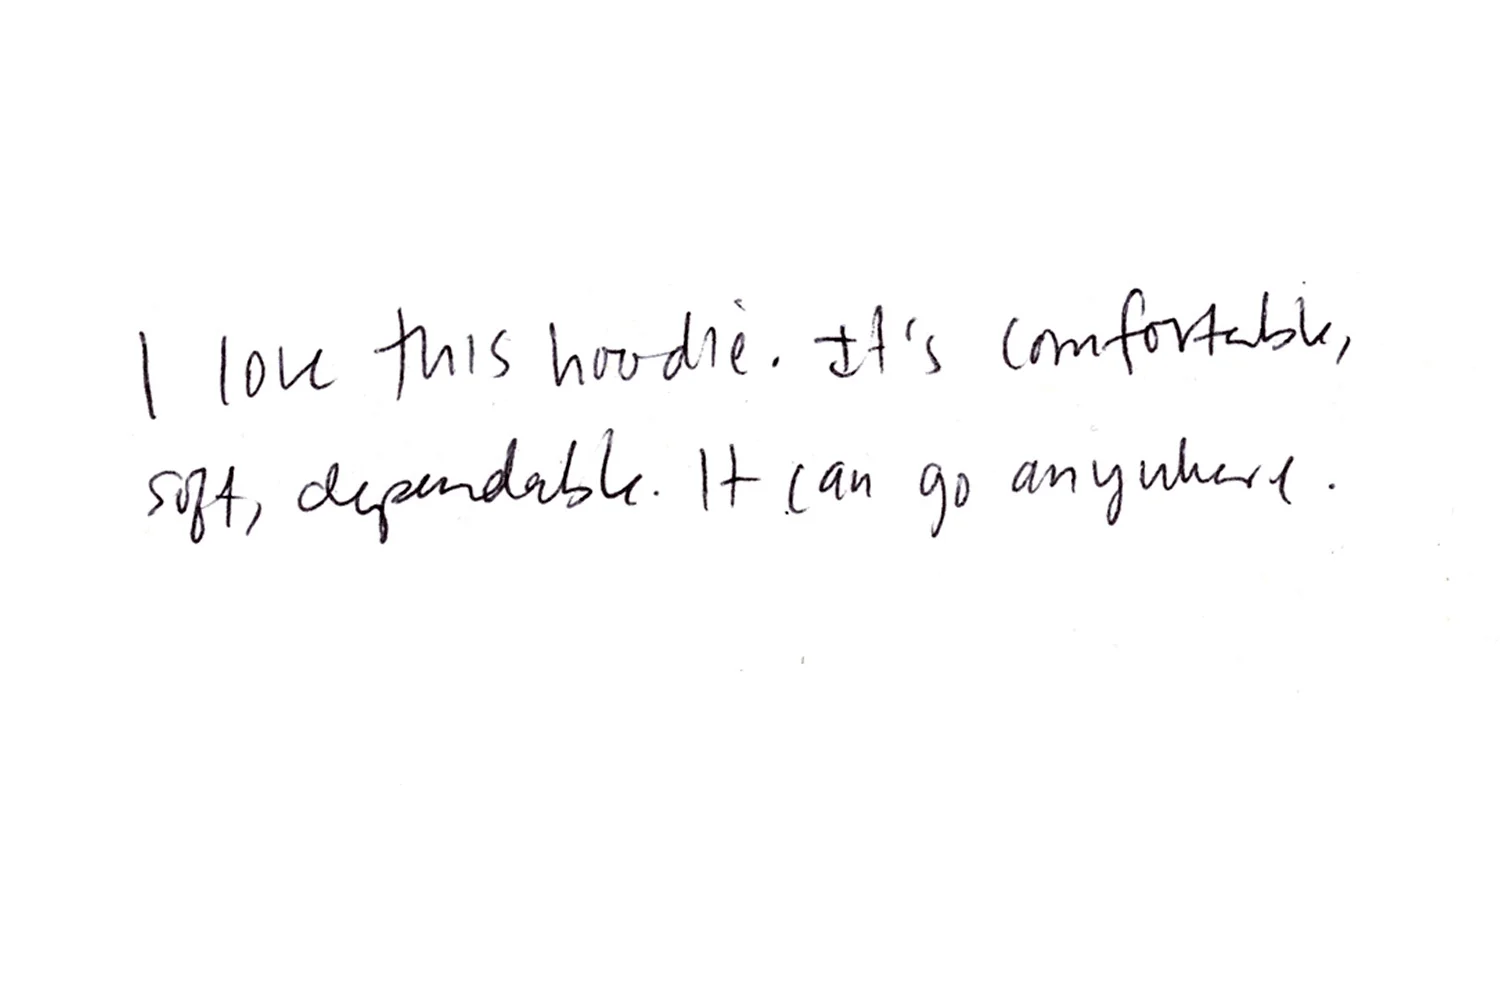 I love this hoodie. It's comfortable,
soft, dependable. It can go anywhere.